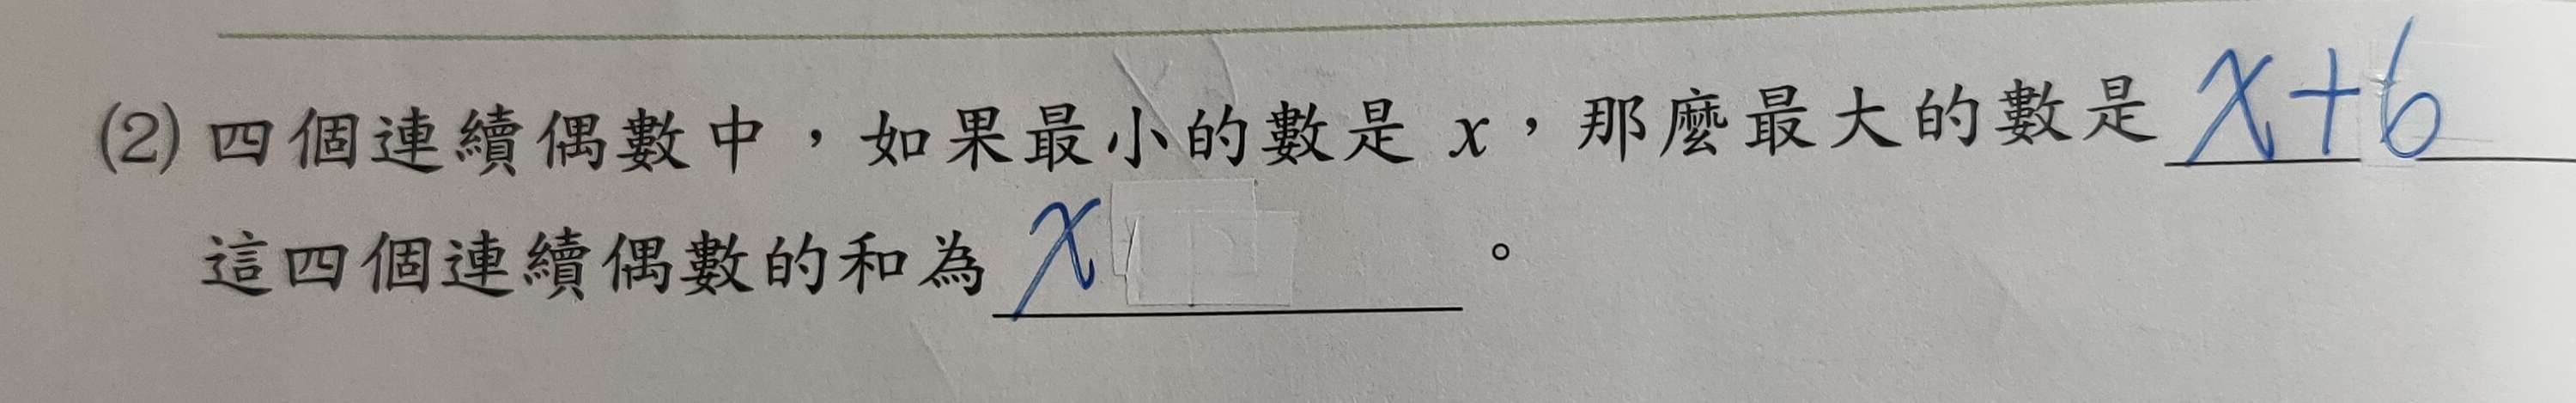 (2) 四個連續偶數中，如果最小的數是 x，那麼最大的數是 x+6
這四個連續偶數的和為 x 。